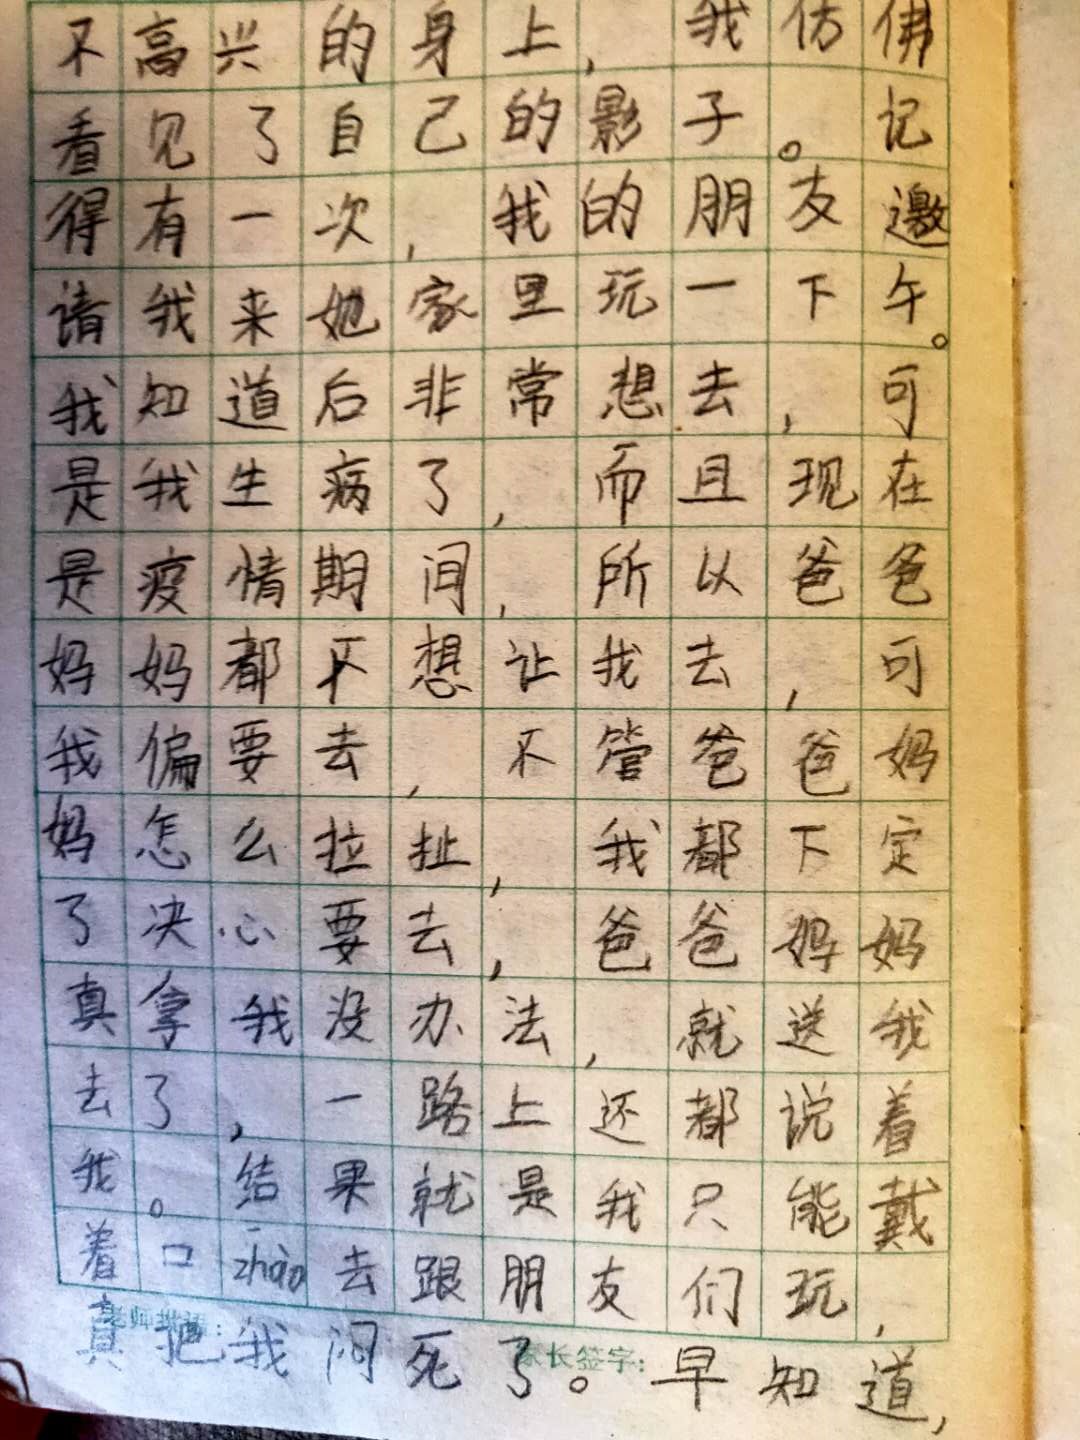 不高兴的身上，我仿佛
看见了自己的影子。记
得有一次，我的朋友邀
请我来她家里玩一下午。
我知道后非常想去，可
是我生病了，而且现在
是疫情期间，所以爸爸
妈妈都不想让我去，可
我偏要去，不管爸爸妈
妈怎么拉扯，我都下定
了决心要去，爸爸妈妈
真拿我没办法，就送我
去了，一路上还都说着
我。结果就是我只能戴
着口zhào去跟朋友们玩，
老师批语：
家长签字：
真把我闷死了。早知道，